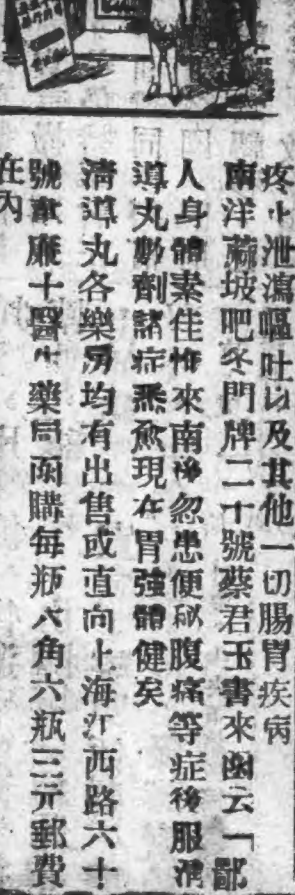 疼止泄瀉嘔吐以及其他一切腸胃疾病
南洋蔴坡吧冬門牌二十號蔡君玉書來函云「鄙
人身體素佳惟來南後忽患便秘腹痛等症後服清
導丸數劑諸症悉愈現在胃強體健矣
清導丸各藥房均有出售或直向上海江西路六十
號韋廉士醫生藥局函購每瓶六角六瓶三元郵費
在內